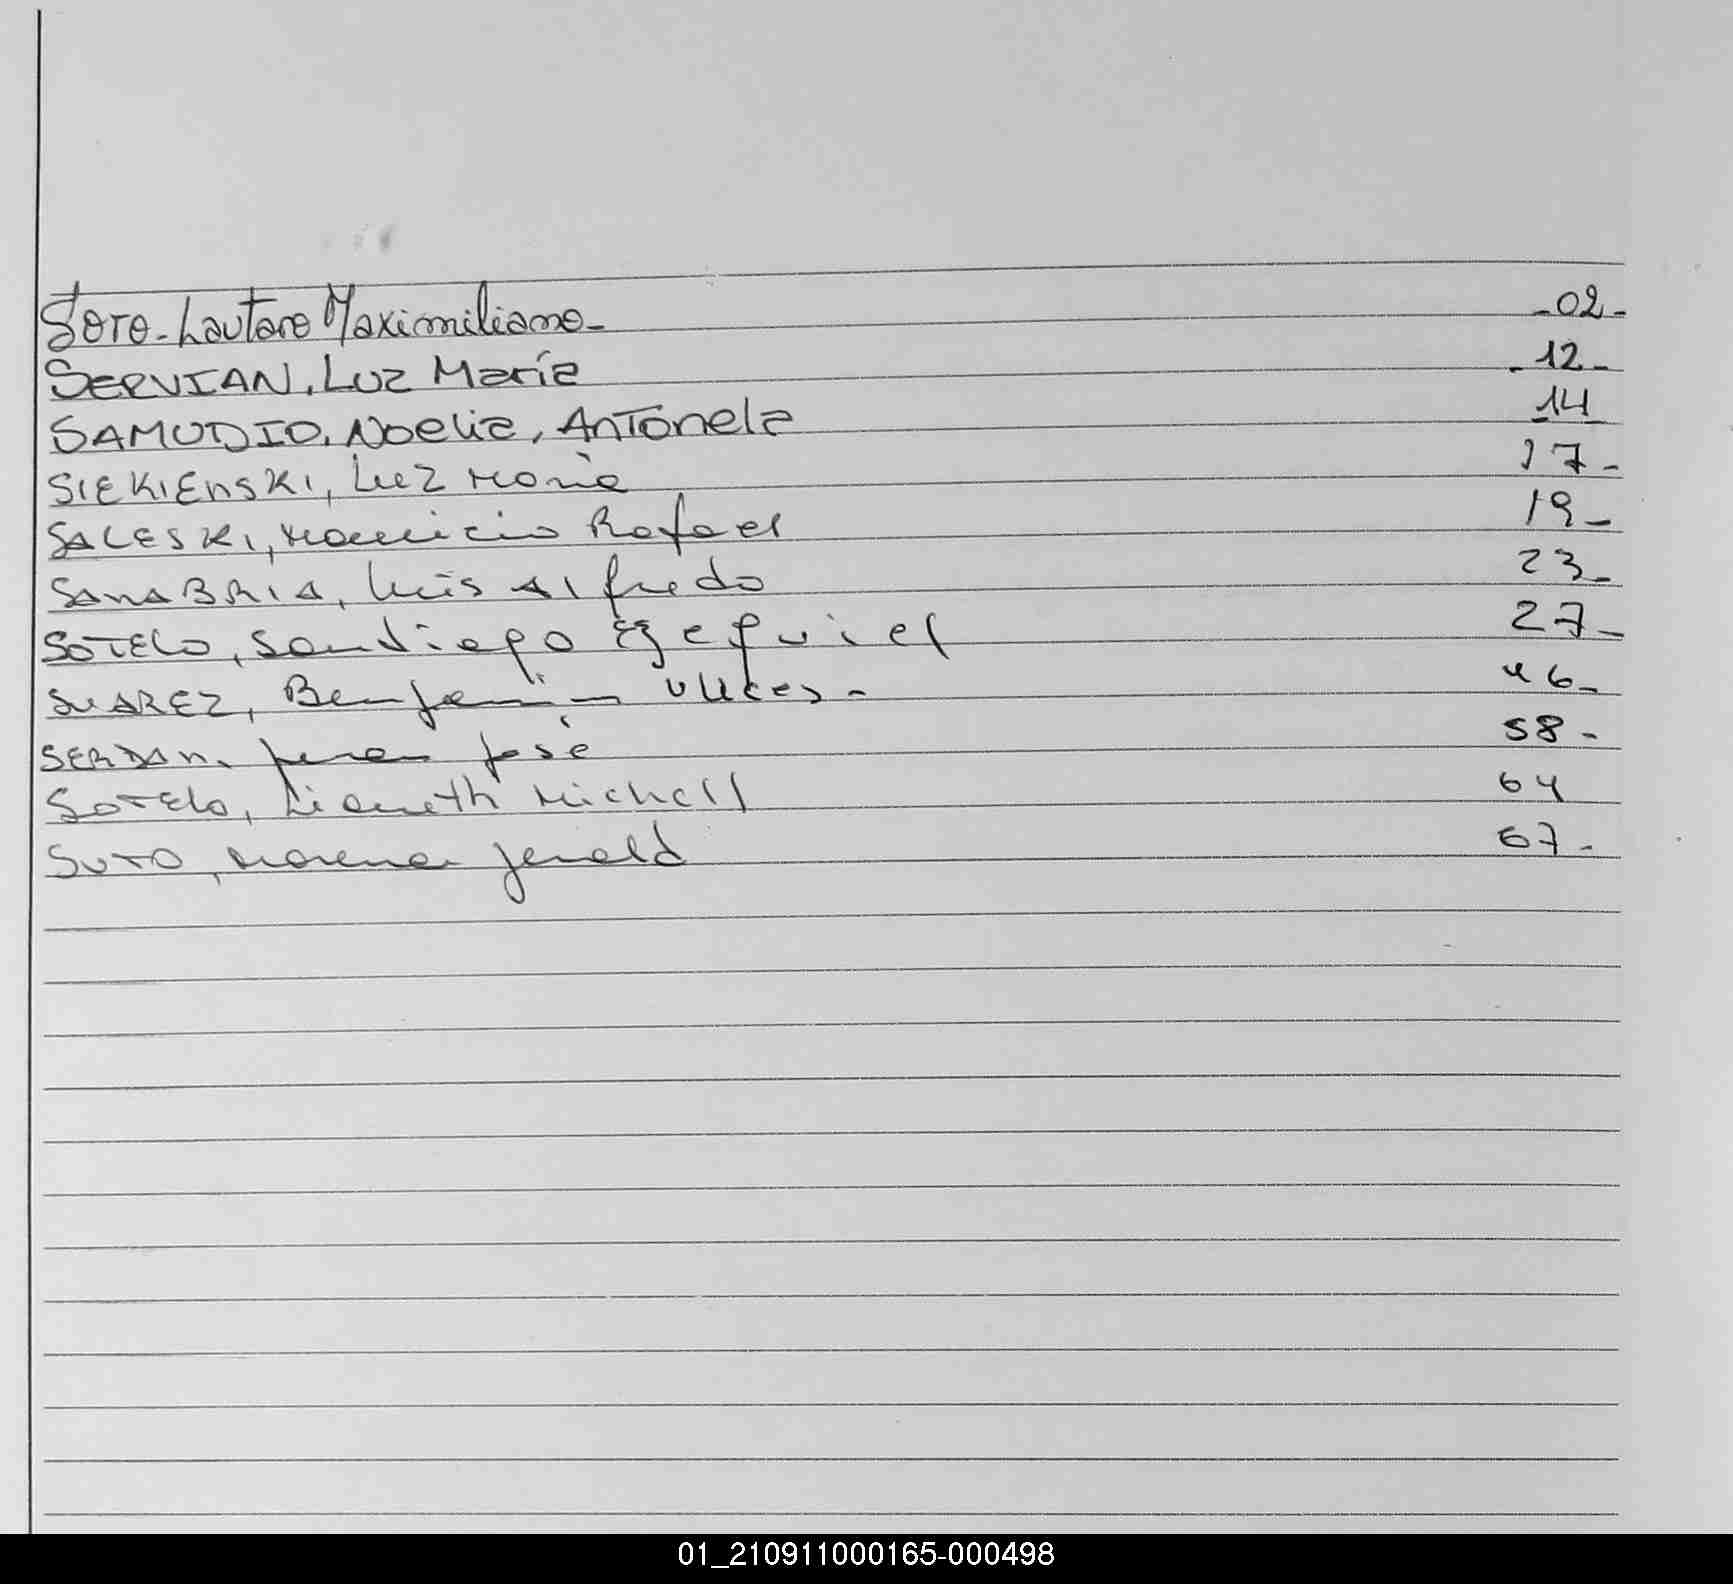 Soto - Lautaro Maximiliano - -02-
SERVIAN, LUZ María -12-
SAMUDIO, Noelia, Antonela -14
SIEKIENSKI, Luz María 17-
SALESKI, Mauricio Rafael 19-
SANABRIA, Luis Alfredo 23-
SOTELO, Sandiego Ezequiel 27-
SUAREZ, Benjamin Ulices - 46-
SERDAN, Juan José 58-
SOTELO, Lianeth Michell 64
SOTO, Morena 67-
01_210911000165-000498